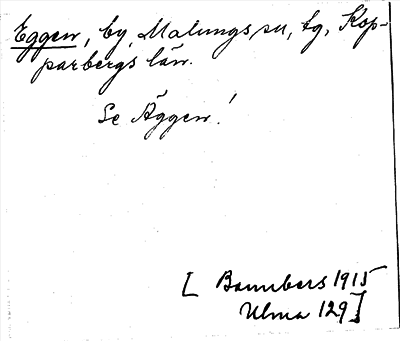 Eggen, by, Malungs sn, lg, Kop-
parbergs län.
Se Äggen!
[ Bannbers 1915
Ulma 129]